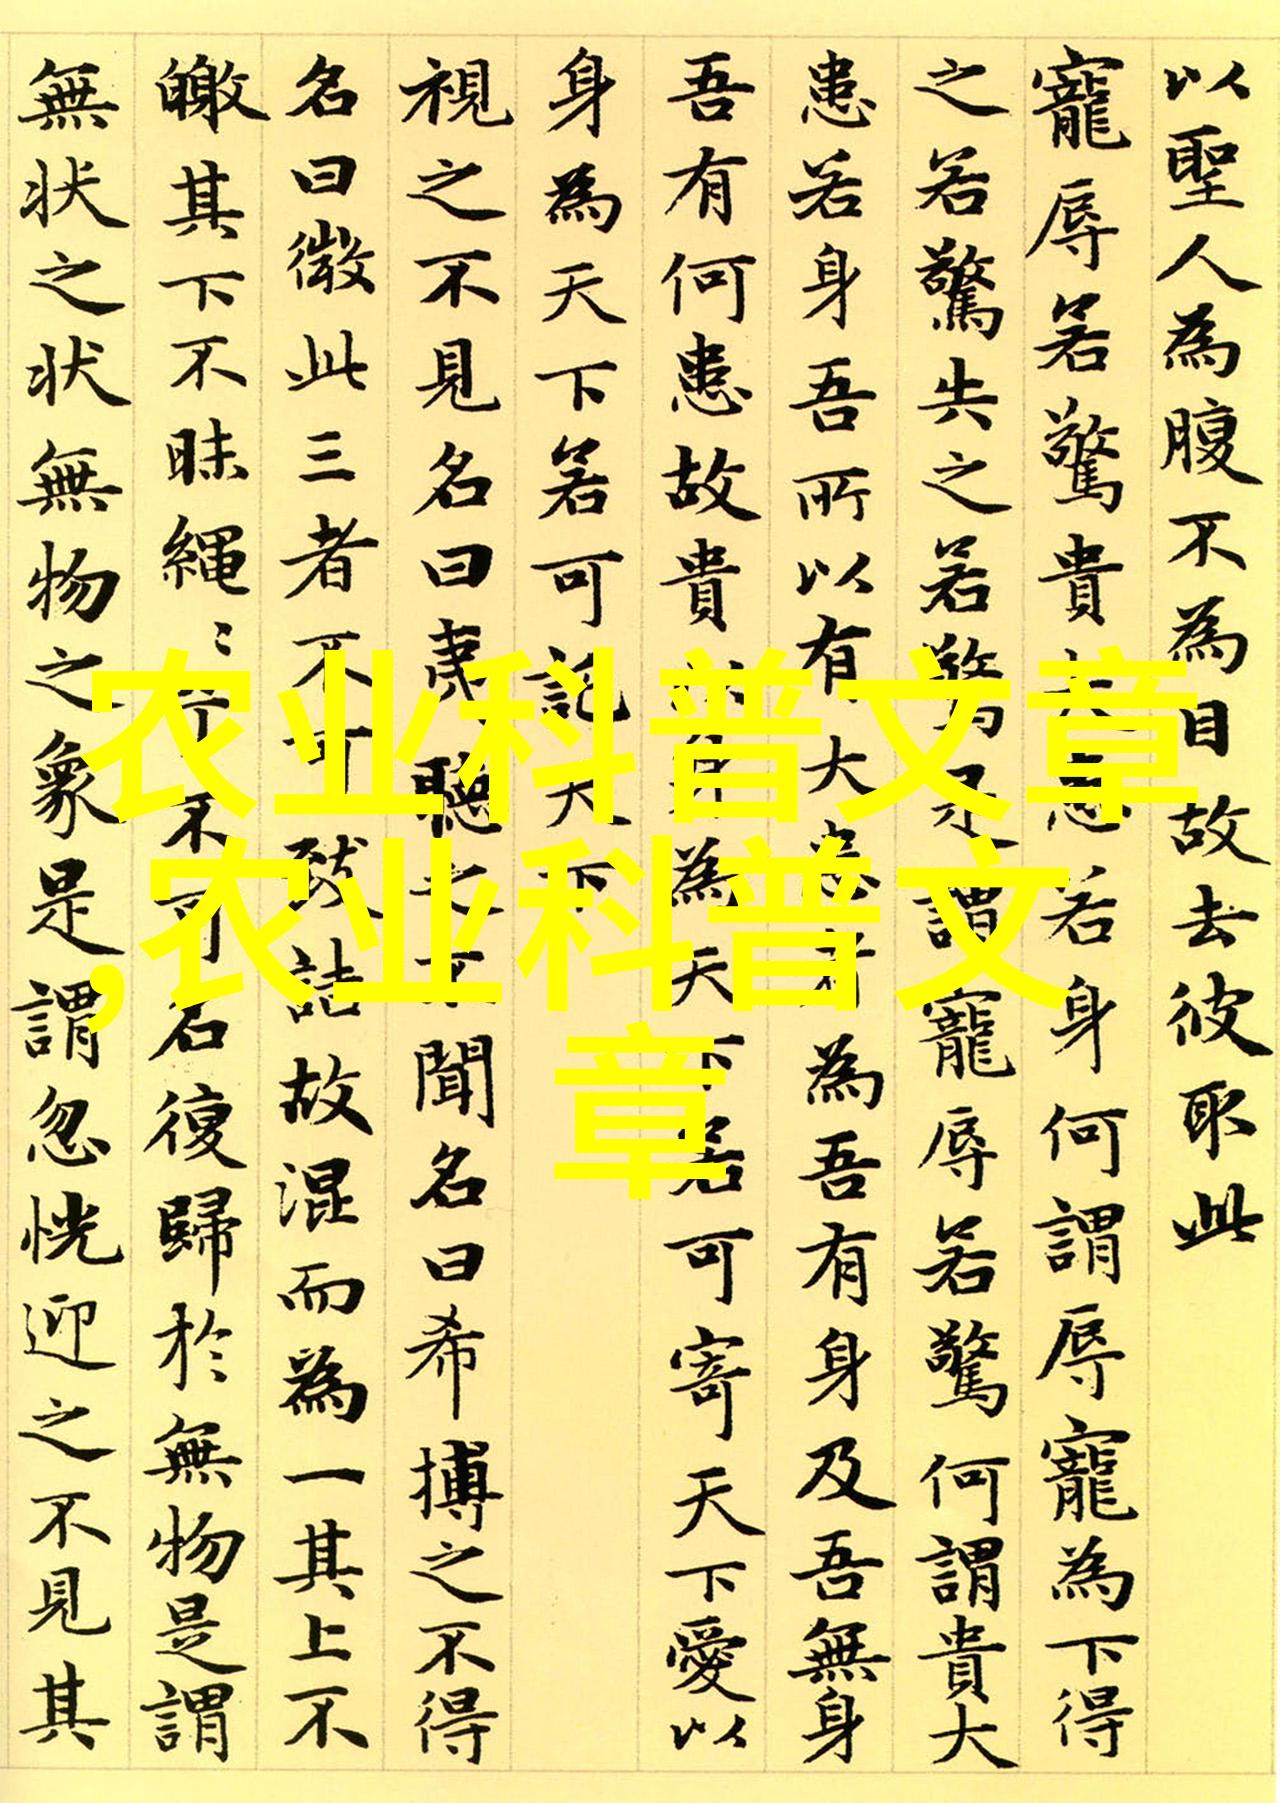 以聖人為腹不為目故去彼取此
寵辱若驚貴大患若身何謂辱寵為下得
之若驚失之若驚是謂寵辱若驚何謂貴大
患若身吾所以有大患者為吾有身及吾無身
吾有何患故貴以身為天下若可寄天下愛以
身為天下若可託天下
視之不見名曰夷聽之不聞名曰希搏之不得
名曰微此三者不可致詰故混而為一其上不
皦其下不昧繩〻兮不可名復歸於無物是謂
無状之状無物之象是謂忽恍迎之不見其
农业科普文章
,农业科普文
章